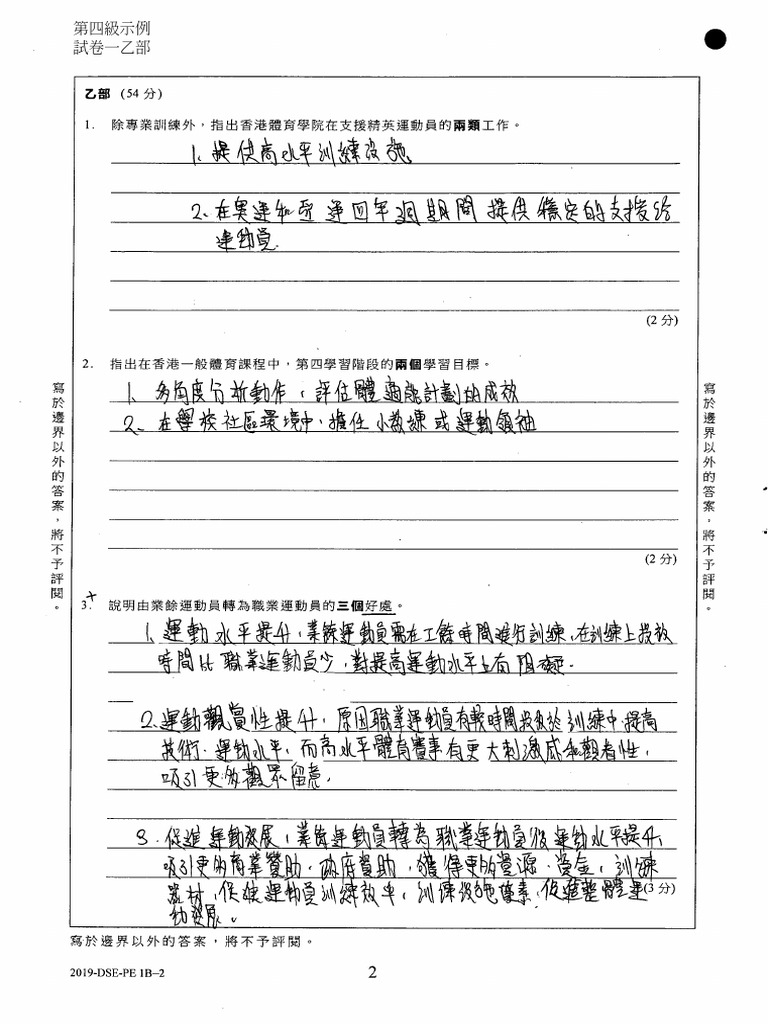 第四級示例
試卷一乙部
乙部 (54 分)
1. 除專業訓練外，指出香港體育學院在支援精英運動員的兩類工作。
1. 提供高水平訓練設施
2. 在奧運和亞運四年週期間提供穩定的支援給
運動員.
(2 分)
2. 指出在香港一般體育課程中，第四學習階段的兩個學習目標。
1. 多角度分析動作，評估體適能計劃的成效
2. 在學校社區環境中，擔任小教練或運動領袖
(2 分)
3. 說明由業餘運動員轉為職業運動員的三個好處。
1. 運動水平提升，業餘運動員需在工餘時間進行訓練，在訓練上投放
時間比職業運動員少，對提高運動水平上有阻礙.
2. 運動觀賞性提升，原因職業運動員有較時間投放於訓練中，提高
技術、運動水平，而高水平體育賽事有更大刺激感和觀看性，
吸引更多觀眾留意.
3. 促進運動發展，業餘運動員轉為職業運動員後運動水平提升，
吸引更多商業贊助，政府資助，獲得更多資源、資金、訓練
器材，促使運動員訓練效率，訓練設施 促進整體運
(3 分)
動發展。
寫於邊界以外的答案，將不予評閱。
寫於邊界以外的答案，將不予評閱。
寫於邊界以外的答案，將不予評閱。
2019-DSE-PE 1B–2
2